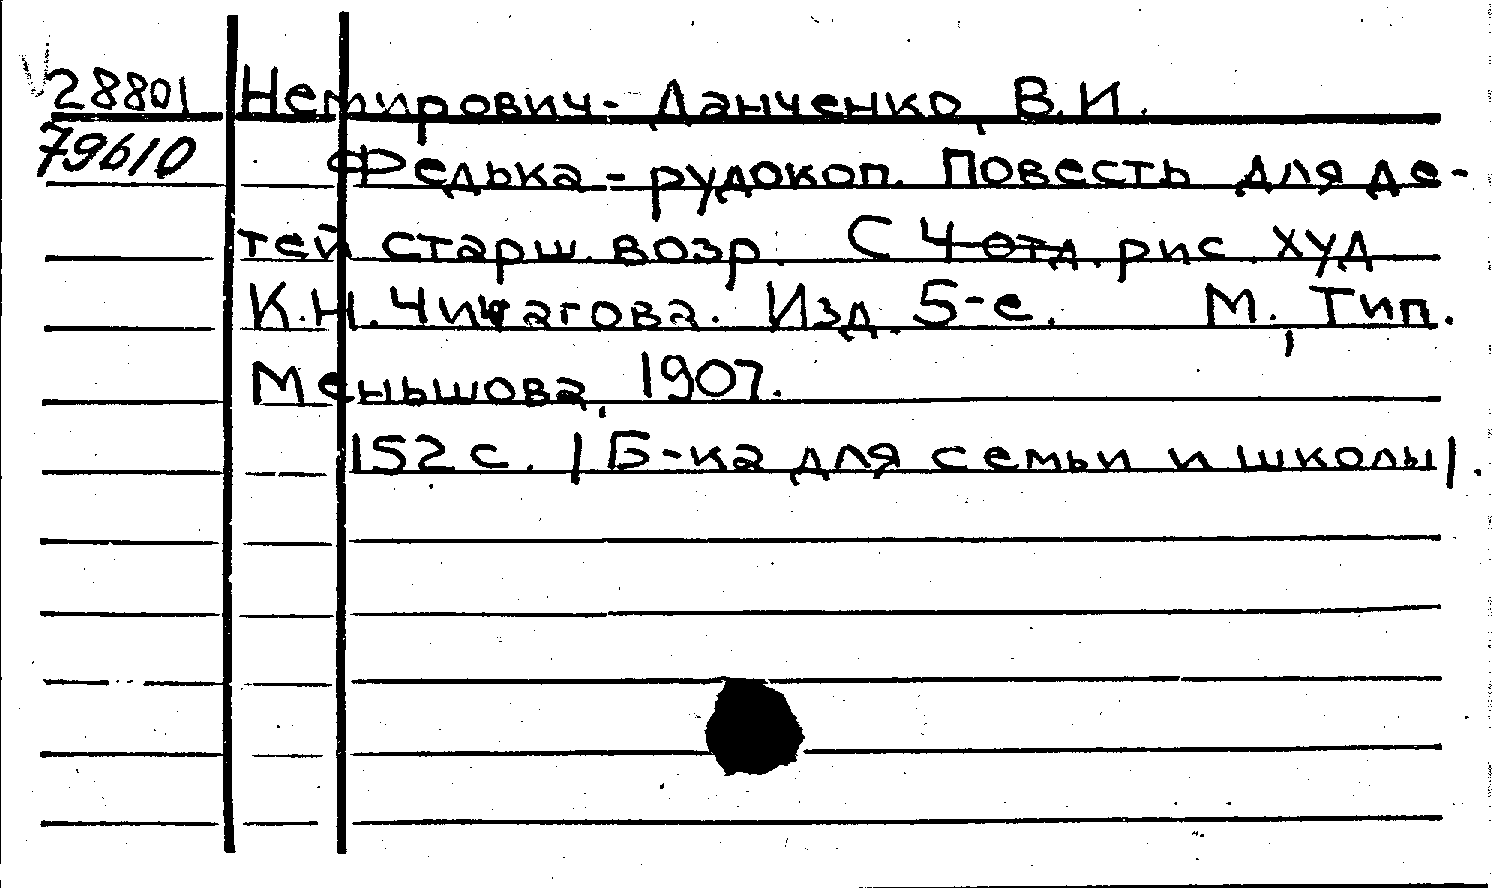 28801 Немирович-Данченко, В.И.
79610 Федька-рудокоп. Повесть для де-
тей старш. возр. С 4 отд. рис. худ
К.Н. Чичагова. Изд. 5-е. М., Тип.
Меньшова, 1907.
152 с. /Б-ка для семьи и школы/.